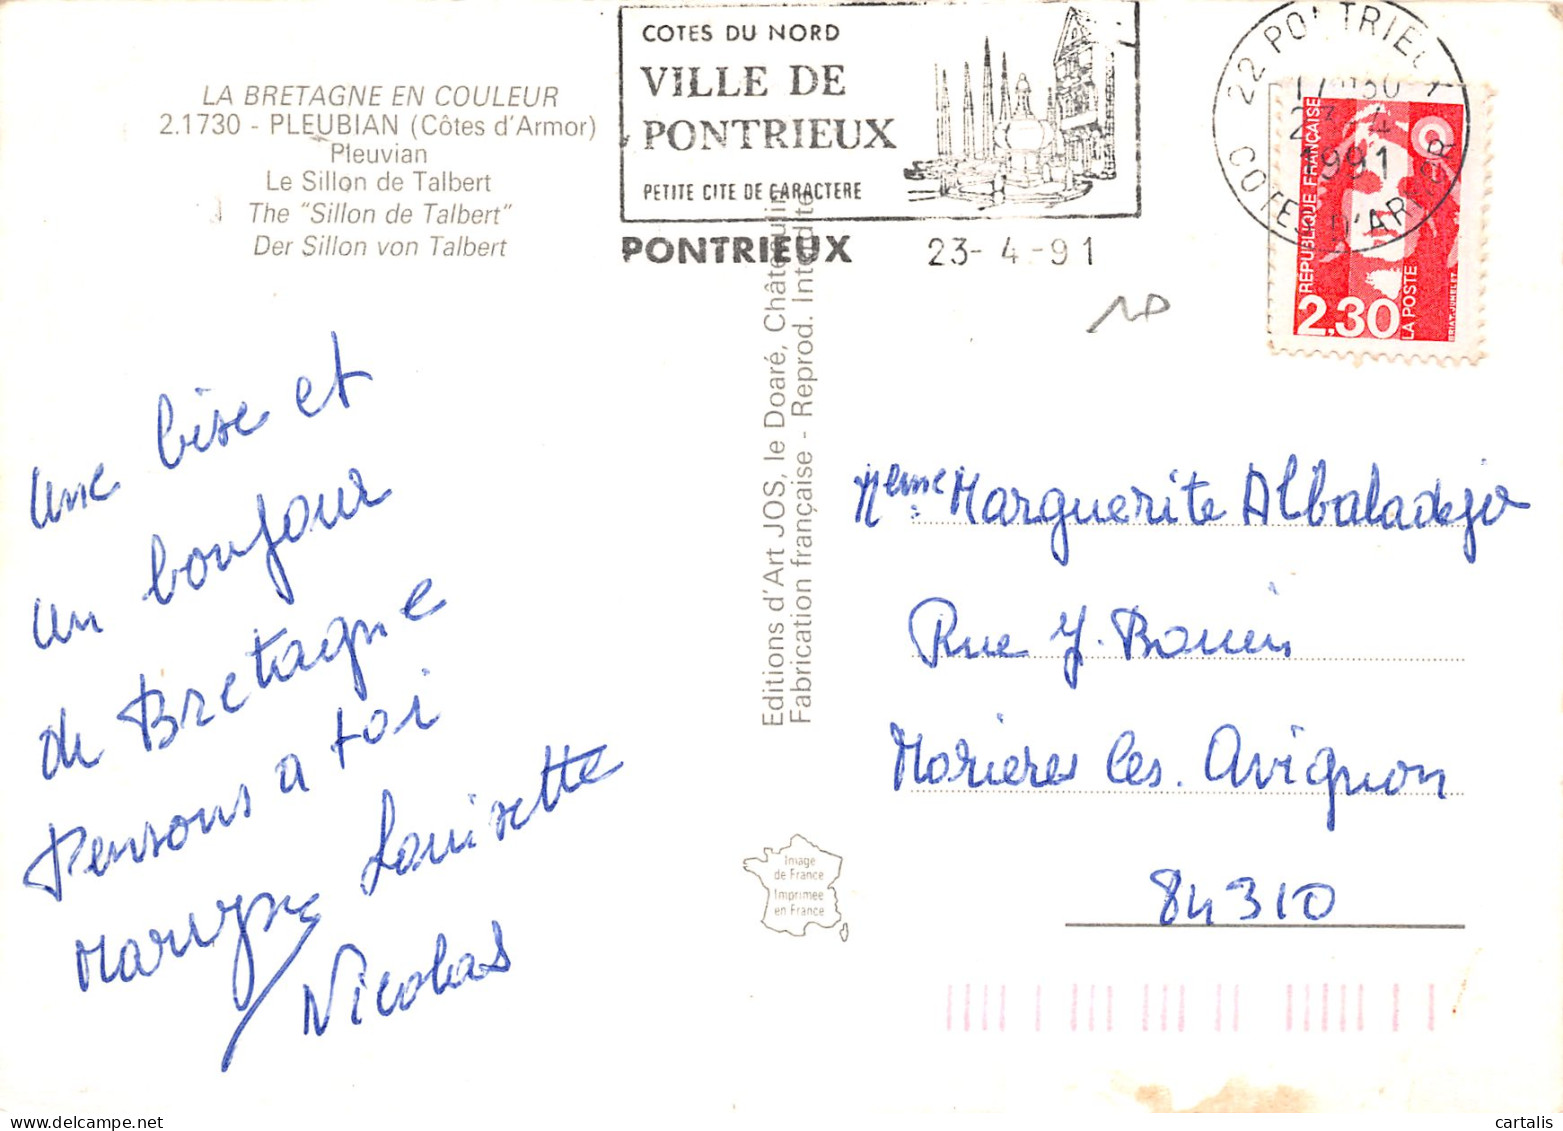 LA BRETAGNE EN COULEUR
2.1730 - PLEUBIAN (Côtes d'Armor)
Pleuvian
Le Sillon de Talbert
The "Sillon de Talbert"
Der Sillon von Talbert
COTES DU NORD
VILLE DE
PONTRIEUX
PETITE CITE DE CARACTERE
PONTRIEUX 23-4-91
22 PONTRIEUX
23-4
1991
COTES D'ARMOR
REPUBLIQUE FRANÇAISE
2,30
LA POSTE
BRIAT-JUMELET
une bise et
un bonjour
de Bretagne
Pensons a toi
Louisette
Nicolas
Editions d'Art JOS, le Doaré, Châteaulin
Fabrication française - Reprod. Interdite
Image
de France
Imprimée
en France
Meme Marguerite Albaladejo
Rue J. Bouin
Morieres les. Avignon
84310
cartalis